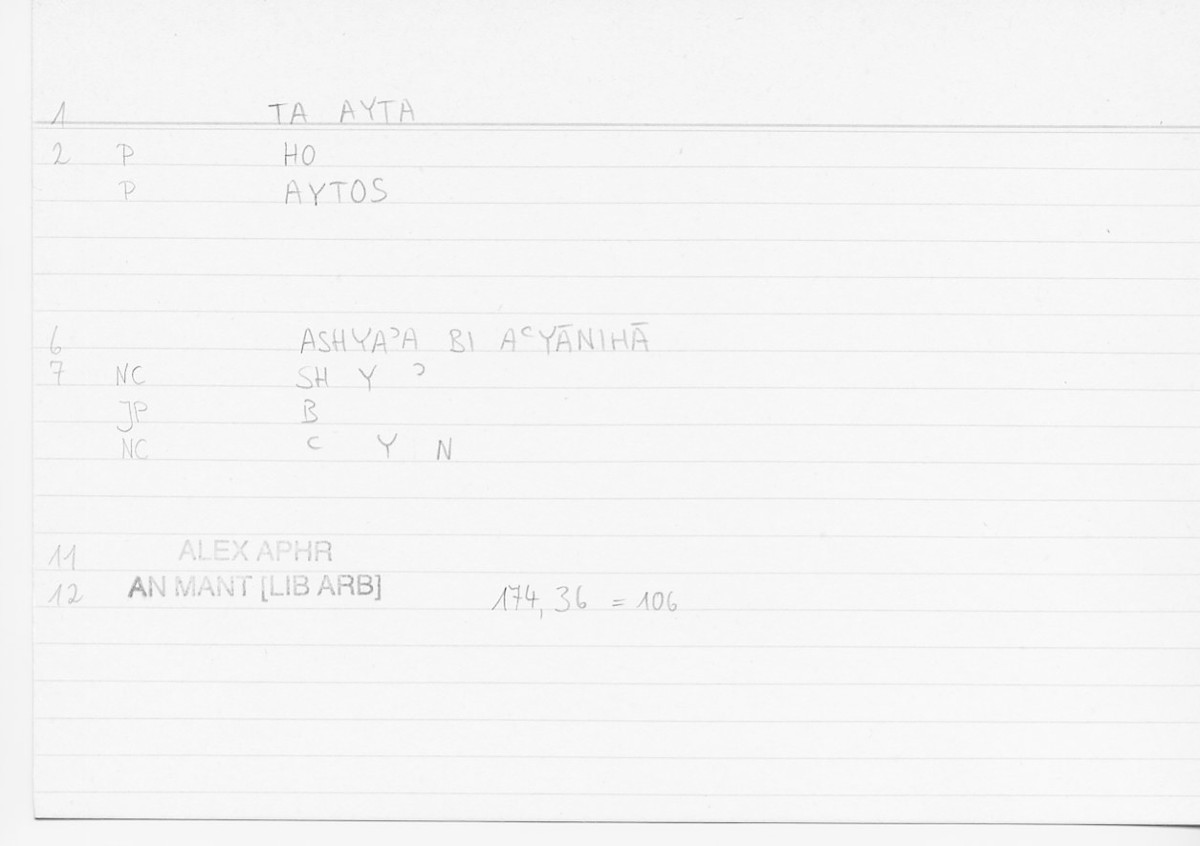 1 TA AYTA
2 P HO
P AYTOS
6 ASHYAʾA BI AʿYĀNIHĀ
7 NC SH Y ʾ
JP B
NC ʿ Y N
11 ALEX APHR
12 AN MANT [LIB ARB] 174,36 = 106